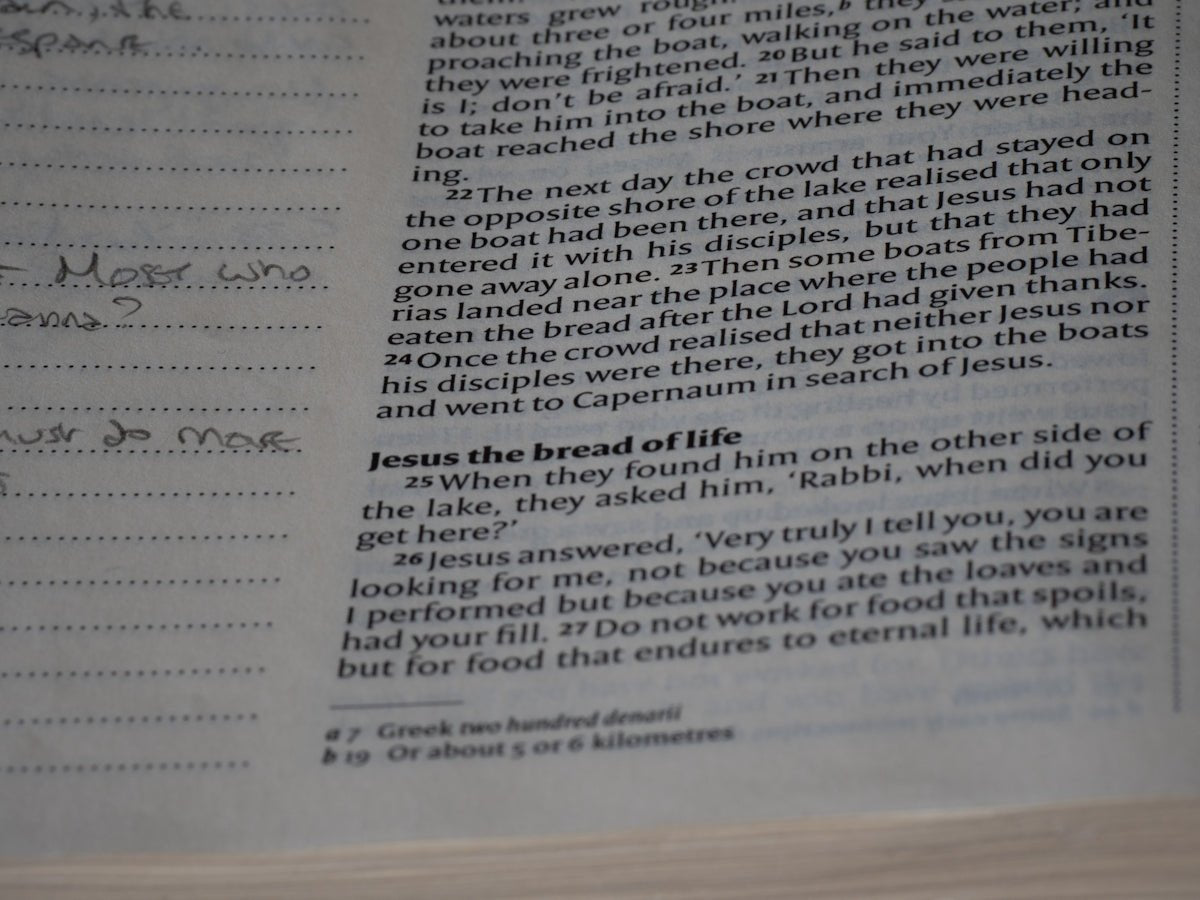 the
- Most who
anna?
must do more
waters grew rough
about three or four miles,b they
proaching the boat, walking on the water; and
they were frightened. 20 But he said to them, ‘It
is I; don’t be afraid.’ 21 Then they were willing
to take him into the boat, and immediately the
boat reached the shore where they were head-
ing.
22 The next day the crowd that had stayed on
the opposite shore of the lake realised that only
one boat had been there, and that Jesus had not
entered it with his disciples, but that they had
gone away alone. 23 Then some boats from Tibe-
rias landed near the place where the people had
eaten the bread after the Lord had given thanks.
24 Once the crowd realised that neither Jesus nor
his disciples were there, they got into the boats
and went to Capernaum in search of Jesus.
Jesus the bread of life
25 When they found him on the other side of
the lake, they asked him, ‘Rabbi, when did you
get here?’
26 Jesus answered, ‘Very truly I tell you, you are
looking for me, not because you saw the signs
I performed but because you ate the loaves and
had your fill. 27 Do not work for food that spoils,
but for food that endures to eternal life, which
a 7 Greek two hundred denarii
b 19 Or about 5 or 6 kilometres